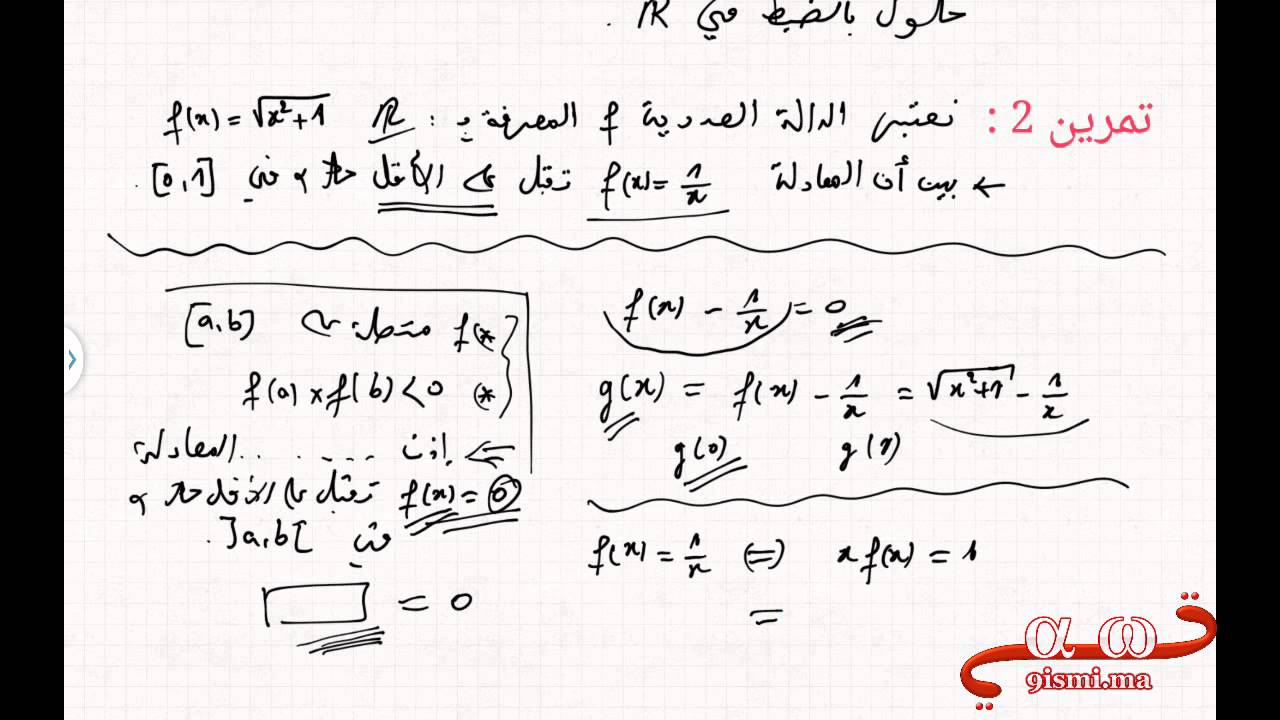 حلول بالضبط في ℝ.
تمرين 2 : نعتبر الدالة العددية f المعرفة بـ : ℝ f(x) = √(x²+1)
← بين أن المعادلة f(x) = 1/x تقبل على الأقل حلا α في [0,1].
[a,b] f متصلة على (*
f(a) × f(b) < 0 (*
⇐ إذن ........ المعادلة
f(x) = 0 تقبل على الأقل حلا α
في ]a,b[.
= 0
f(x) - 1/x = 0
g(x) = f(x) - 1/x = √(x²+1) - 1/x
g(0) g(1)
f(x) = 1/x ⇔ x f(x) = 1
=
α ω ت
9ismi.ma